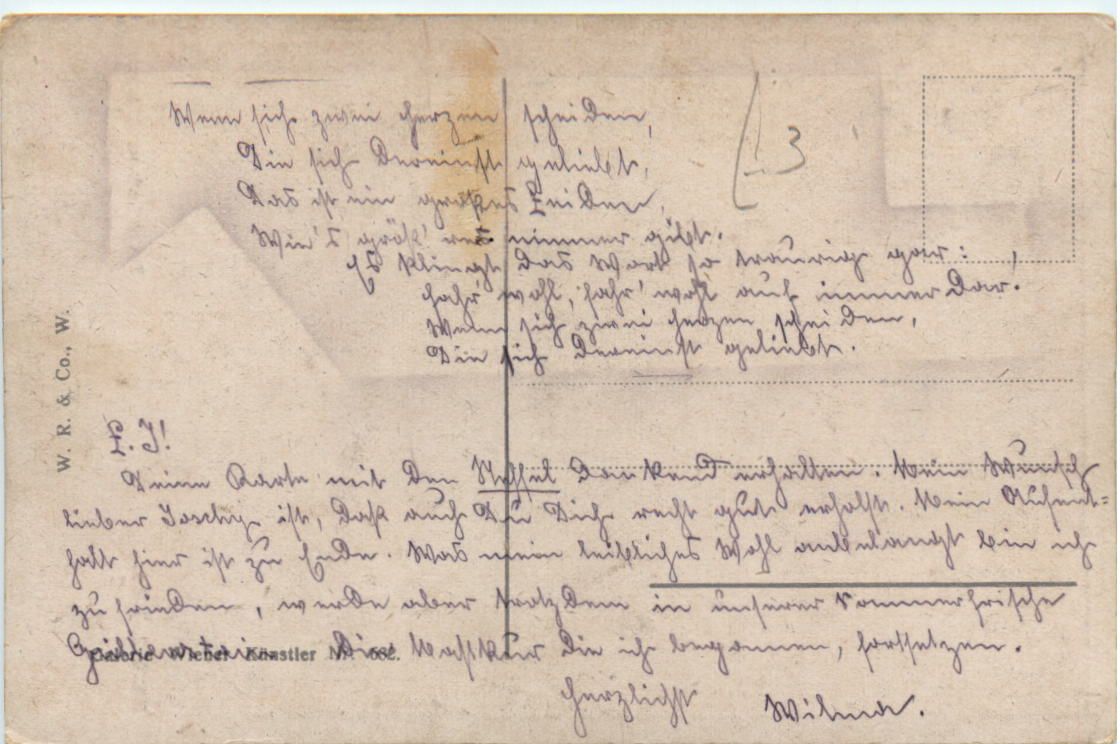 Wenn sich zwei Herzen scheiden,
Die sich dereinst geliebt,
Das ist ein großes Leiden,
Wie's größ'res nimmer gibt.
Es klingt das Wort so traurig gar:
Fahr' wohl, fahr' wohl auf immerdar!
Wenn sich zwei Herzen scheiden,
Die sich dereinst geliebt.
13
W. R. & Co., W.
L. J!
Deine Karte mit den dankend erhalten. Mein Wunsch
lieber Joschy ist, daß auch Du Dich recht gut erholst. Mein Aufent=
halt hier ist zu Ende. Was mein leibliches Wohl anbelangt bin ich
zufrieden, werde aber trotzdem in unserer Sommerfrische
die Mastkur die ich begonnen, fortsetzen.
Galerie Wiener Künstler Nr.
Herzlichst
Wilma.